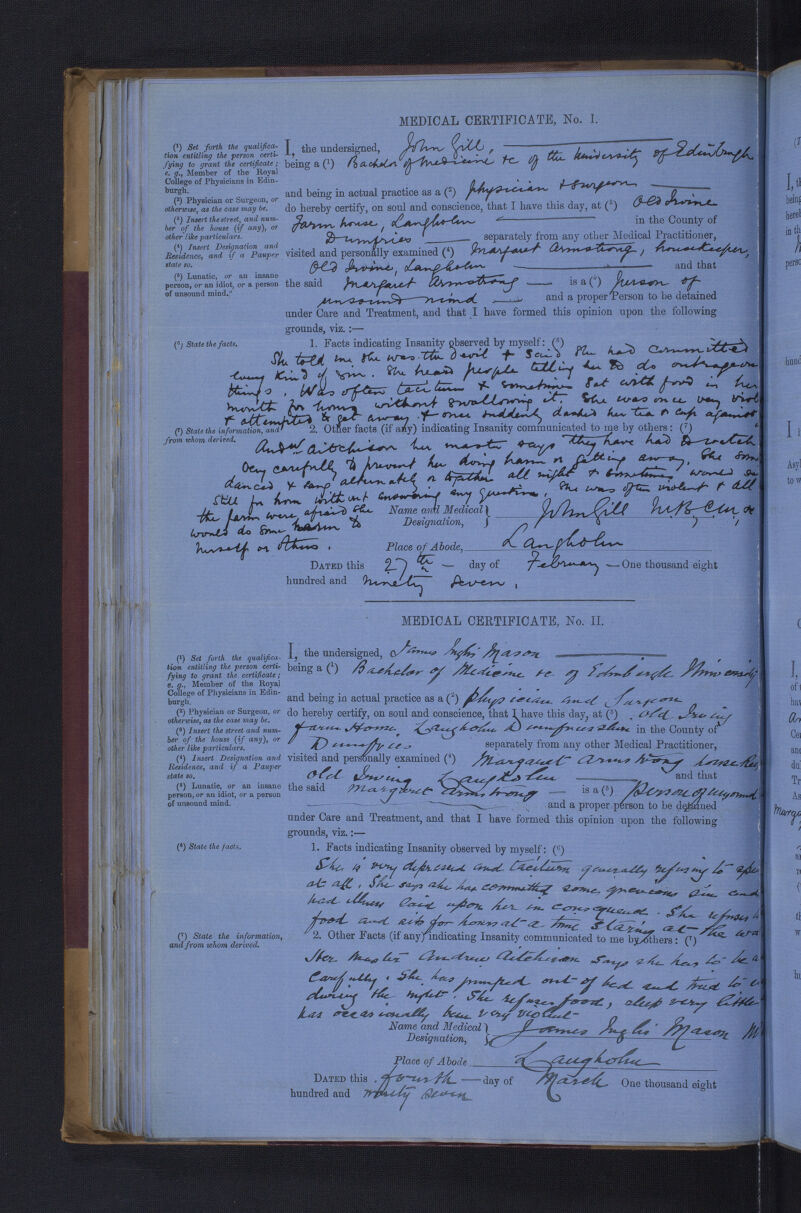 MEDICAL CERTIFICATE, No. I.
(¹) Set forth the qualifica-
tion entitling the person certi-
fying to grant the certificate;
e. g., Member of the Royal
College of Physicians in Edin-
burgh.
(²) Physician or Surgeon, or
otherwise, as the case may be.
(³) Insert the street, and num-
ber of the house (if any), or
other like particulars.
(⁴) Insert Designation and
Residence, and if a Pauper
state so.
(⁵) Lunatic, or an insane
person, or an idiot, or a person
of unsound mind.
I, the undersigned, John Gill,
being a (¹) Bachelor of Medicine &c of the University of Edinburgh
and being in actual practice as a (²) physician & surgeon
do hereby certify, on soul and conscience, that I have this day, at (³) Old Irvine
Farm house, Langholm in the County of
Dumfries separately from any other Medical Practitioner,
visited and personally examined (⁴) Margaret Armstrong, housekeeper,
Old Irvine, Langholm and that
the said Margaret Armstrong is a (⁵) person of
unsound mind and a proper Person to be detained
under Care and Treatment, and that I have formed this opinion upon the following
grounds, viz. :—
(⁶) State the facts.
1. Facts indicating Insanity observed by myself: (⁶)
She told me she was the devil & said she had committed
every kind of sin. She hears people telling her to do outrageous
things. Was often taciturn & sometimes sat with food in her
mouth for hours without swallowing it. She was once very viol
& attempted to get away & once suddenly dashed her tea & cup against
(⁷) State the information, and
from whom derived.
2. Other facts (if any) indicating Insanity communicated to me by others: (⁷)
Andw Aitchison her master says they have had to watch
very carefully to prevent her doing harm or getting away. She som
danced & sang alternately or together all night & sometimes would
still for hours without answering any questions. She was often violent & all
the farm were afraid she
would do some harm to
herself or others.
Name and Medical
Designation, John Gill M.B., C.M., &
Place of Abode, Langholm
DATED this 27th day of February One thousand eight
hundred and ninety seven.
MEDICAL CERTIFICATE, No. II.
(¹) Set forth the qualifica-
tion entitling the person certi-
fying to grant the certificate;
e. g., Member of the Royal
College of Physicians in Edin-
burgh.
(²) Physician or Surgeon, or
otherwise, as the case may be.
(³) Insert the street and num-
ber of the house (if any), or
other like particulars.
(⁴) Insert Designation and
Residence, and if a Pauper
state so.
(⁵) Lunatic, or an insane
person, or an idiot, or a person
of unsound mind.
I, the undersigned, James Inglis Mason
being a (¹) Bachelor of Medicine &c. of Edinburgh University
and being in actual practice as a (²) physician and Surgeon
do hereby certify, on soul and conscience, that I have this day, at (³) Old Irving
Farm House, Langholm Dumfriesshire in the County of
Dumfries separately from any other Medical Practitioner,
visited and personally examined (⁴) Margaret Armstrong
Old Irving Langholm and that
the said Margaret Armstrong is a (⁵) person of unsound
and a proper person to be detained
under Care and Treatment, and that I have formed this opinion upon the following
grounds, viz. :—
(⁶) State the facts.
1. Facts indicating Insanity observed by myself: (⁶)
She is very depressed and taciturn generally refusing to
at all. She says she has committed some grievous sin and
had illness laid upon her in consequence. She refuses
food and sits for hours at a time staring at the
(⁷) State the information,
and from whom derived.
2. Other Facts (if any) indicating Insanity communicated to me by others: (⁷)
Her master Andrew Aitchison says she has to be
carefully. She has jumped out of bed and tried to
during the night. She refuses food, sleeps very little
has occasionally been very violent
Name and Medical
Designation, James Inglis Mason M
Place of Abode Langholm
DATED this fourth day of March One thousand eight
hundred and ninety seven